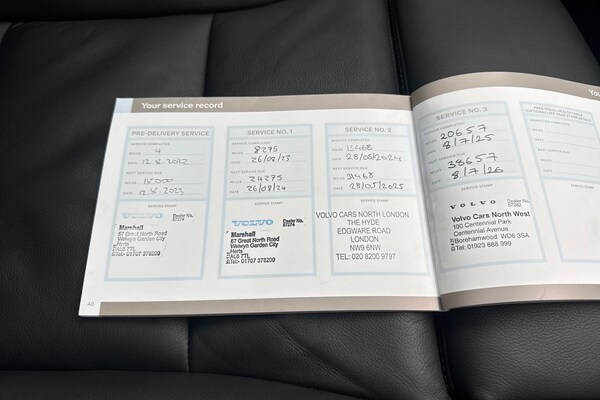 Your service record
You
PRE-DELIVERY SERVICE
SERVICE COMPLETED
MILES 4
DATE 12.8.2022
NEXT SERVICE DUE
MILES 18,000
DATE 12.8.2023
SERVICE STAMP
VOLVO
Dealer No.
57274
Marshall
57 Great North Road
Welwyn Garden City
Herts
AL8 7TL
Tel:- 01707 376200
SERVICE NO. 1
SERVICE COMPLETED
MILES 8295
DATE 26/08/23
NEXT SERVICE DUE
MILES 24295
DATE 26/08/24
SERVICE STAMP
VOLVO
Dealer No.
57274
Marshall
57 Great North Road
Welwyn Garden City
Herts
AL8 7TL
Tel:- 01707 376200
SERVICE NO. 2
SERVICE COMPLETED
MILES
DATE 28/05/2024
NEXT SERVICE DUE
MILES
DATE 28/05/2025
SERVICE STAMP
VOLVO CARS NORTH LONDON
THE HYDE
EDGWARE ROAD
LONDON
NW9 6NW
TEL: 020 8200 9797
SERVICE NO. 3
SERVICE COMPLETED
MILES 20657
DATE 8/7/25
NEXT SERVICE DUE
MILES 38657
DATE 8/7/26
SERVICE STAMP
VOLVO
Volvo Cars North West
100 Centennial Park
Centennial Avenue
Borehamwood WD6 3SA
Tel: 01923 888 999
SERVICE COMPLETED
MILES
DATE
NEXT SERVICE DUE
MILES
DATE
40